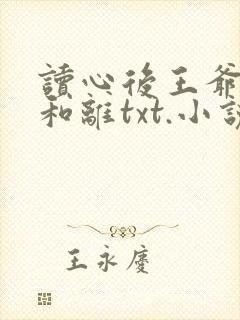 讀心後王爺
和離txt.小說
王永慶